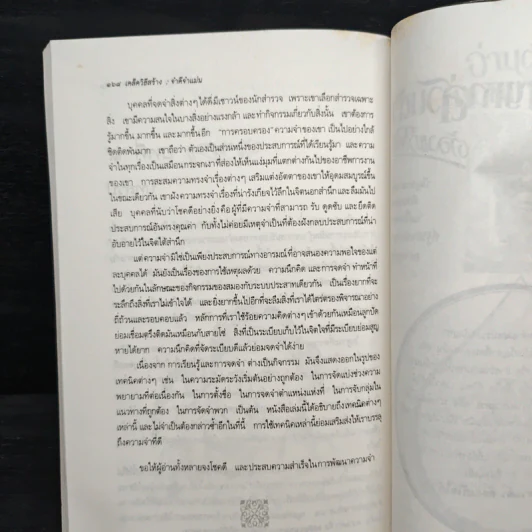 ๑๖๘ เคล็ดวิธีสร้าง : จำดีจำแม่น
บุคคลที่จดจำสิ่งต่างๆ ได้ดีมีเชาวน์ของนักสำรวจ เพราะเขาเลือกสำรวจเฉพาะ
สิ่ง เขามีความสนใจในบางสิ่งอย่างแรงกล้า และทำกิจกรรมเกี่ยวกับสิ่งนั้น เขาต้องการ
รู้มากขึ้น มากขึ้น และมากขึ้นอีก "การครอบครอง" ความจำของเขา เป็นไปอย่างใกล้
ชิดติดพันมาก เขาถือว่า ตัวเองเป็นส่วนหนึ่งของประสบการณ์ที่ได้เรียนรู้มา และความ
จำในทุกเรื่องเป็นเสมือนกระจกเงาที่ส่องให้เห็นแง่มุมที่แตกต่างกันไปของอาชีพการงาน
ของเขา การสะสมความทรงจำเรื่องต่างๆ เสริมแต่งอัตตาของเขาให้อุดมสมบูรณ์ขึ้น
ในขณะเดียวกัน เขาฝังความทรงจำเรื่องที่น่ารังเกียจไว้ลึกในจิตนอกสำนึก และลืมมันไป
เสีย บุคคลที่นับว่าโชคดีอย่างยิ่งคือผู้ที่มีความจำที่สามารถ รับ ดูดซับ และยึดติด
ประสบการณ์อันทรงคุณค่า กับทั้งไม่ค่อยมีเหตุจำเป็นที่ต้องฝังกลบประสบการณ์ที่น่า
อับอายไว้ในจิตใต้สำนึก
แต่ความจำมิใช่เป็นเพียงประสบการณ์ทางอารมณ์ที่อาจสนองความพอใจของแต่
ละบุคคลได้ มันยังเป็นเรื่องของการใช้เหตุผลด้วย ความนึกคิด และการจดจำ ทำหน้าที่
ไปด้วยกันในลักษณะของกิจกรรมของสมองกับระบบประสาทเดียวกัน เป็นเรื่องยากที่จะ
ระลึกถึงสิ่งที่เราไม่เข้าใจได้ และยิ่งยากขึ้นไปอีกที่จะลืมสิ่งที่เราได้ไตร่ตรองพิจารณาอย่าง
ถี่ถ้วนและรอบคอบแล้ว หลักการที่เราใช้ร้อยความคิดต่างๆ เข้าด้วยกันเหมือนลูกปัด
ย่อมเชื่อมตรึงติดมันเหมือนกับสายโซ่ สิ่งที่เป็นระเบียบเก็บไว้ในจิตใจที่มีระเบียบย่อมสูญ
หายได้ยาก ความนึกคิดที่จัดระเบียบดีแล้วย่อมจดจำได้ง่าย
เนื่องจาก การเรียนรู้และการจดจำ ต่างเป็นกิจกรรม มันจึงแสดงออกในรูปของ
เทคนิคต่างๆ เช่น ในความระมัดระวังเริ่มต้นอย่างถูกต้อง ในการจัดแบ่งช่วงความ
พยายามที่ต่อเนื่องกัน ในการตั้งชื่อ ในการจดจำตำแหน่งแห่งที่ ในการจับกลุ่มใน
แนวทางที่ถูกต้อง ในการจัดจำพวก เป็นต้น หนังสือเล่มนี้ได้อธิบายถึงเทคนิคต่างๆ
เหล่านี้ และไม่จำเป็นต้องกล่าวซ้ำอีกในที่นี้ การใช้เทคนิคเหล่านี้ย่อมเสริมส่งให้เราบรรลุ
ถึงความจำที่ดี
ขอให้ผู้อ่านทั้งหลายจงโชคดี และประสบความสำเร็จในการพัฒนาความจำ